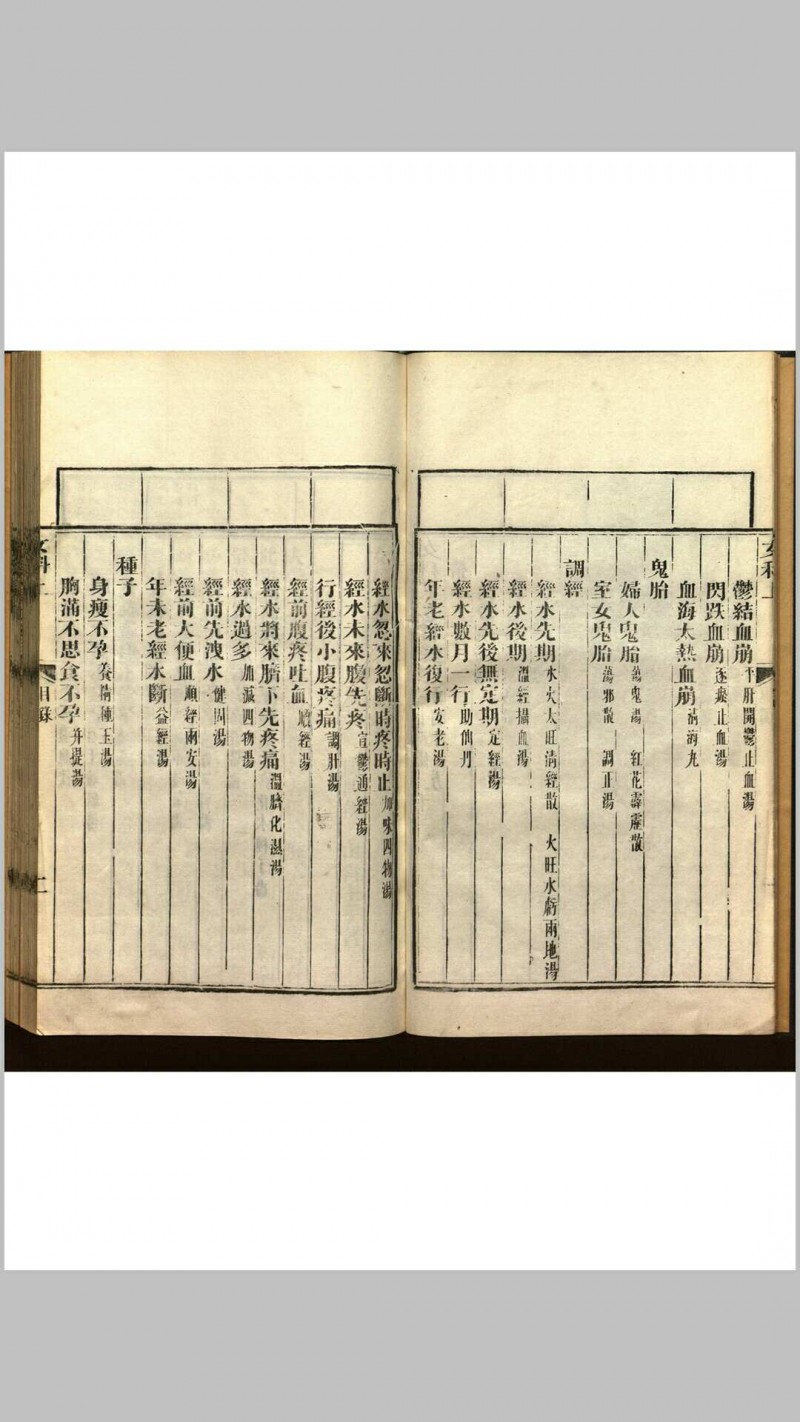 女科上
鬱結血崩 平肝開鬱止血湯
閃跌血崩 逐瘀止血湯
血海太熱血崩 清海丸
鬼胎
婦人鬼胎 蕩鬼湯 紅花霹靂散
室女鬼胎 蕩邪散 調正湯
調經
經水先期 水火太旺清經散 火旺水虧兩地湯
經水後期 溫經攝血湯
經水先後無定期 定經湯
經水數月一行 助仙丹
年老經水復行 安老湯
經水忽來忽斷時疼時止 加味四物湯
經水未來腹先疼 宣鬱通經湯
行經後小腹疼痛 調肝湯
經前腹疼吐血 順經湯
經水將來臍下先疼痛 溫臍化濕湯
經水過多 加減四物湯
經前先洩水 健固湯
經前大便血 順經兩安湯
年未老經水斷 益經湯
種子
身瘦不孕 養精種玉湯
胸滿不思食不孕 并提湯
女科上
目錄
二